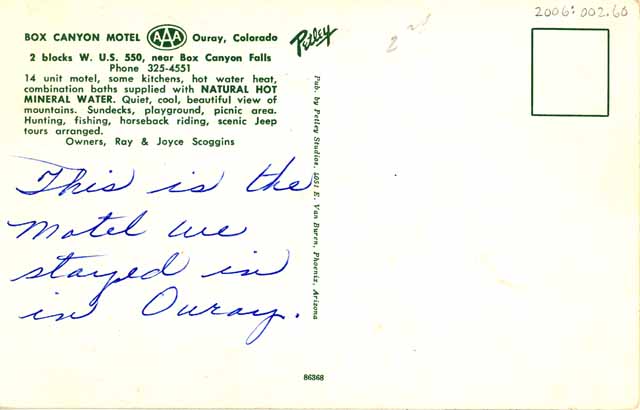 BOX CANYON MOTEL AAA Ouray, Colorado
2 blocks W. U.S. 550, near Box Canyon Falls
Phone 325-4551
14 unit motel, some kitchens, hot water heat,
combination baths supplied with NATURAL HOT
MINERAL WATER. Quiet, cool, beautiful view of
mountains. Sundecks, playground, picnic area.
Hunting, fishing, horseback riding, scenic Jeep
tours arranged.
Owners, Ray & Joyce Scoggins
This is the
motel we
stayed in
in Ouray.
Petley
Pub. by Petley Studios, 4051 E. Van Buren, Phoenix, Arizona
86368
2006:002.60